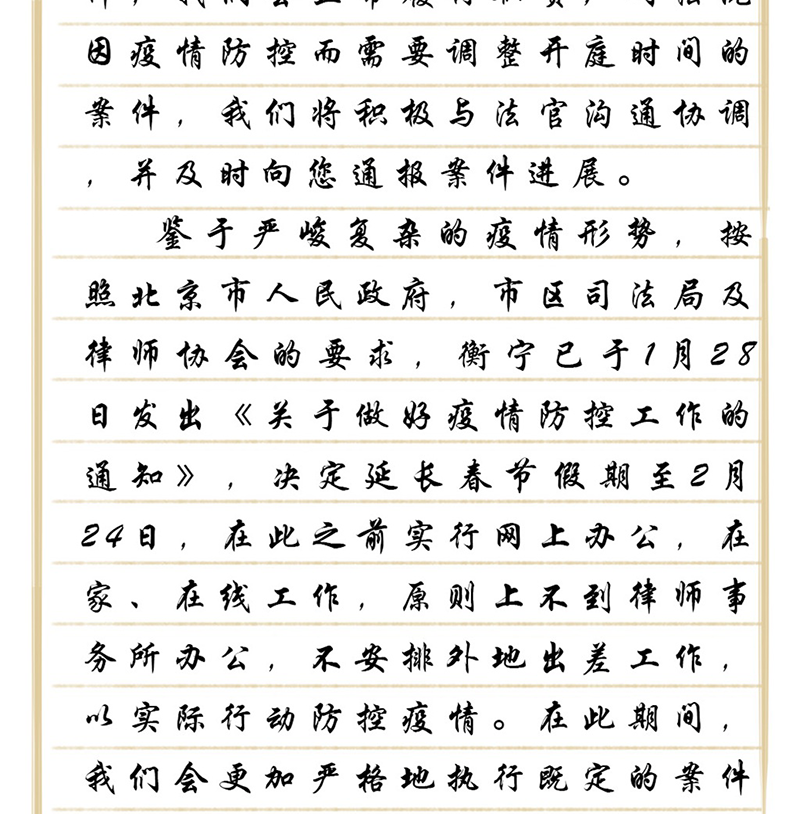 因疫情防控而需要调整开庭时间的
案件，我们将积极与法官沟通协调
，并及时向您通报案件进展。
鉴于严峻复杂的疫情形势，按
照北京市人民政府，市区司法局及
律师协会的要求，衡宁已于1月28
日发出《关于做好疫情防控工作的
通知》，决定延长春节假期至2月
24日，在此之前实行网上办公，在
家、在线工作，原则上不到律师事
务所办公，不安排外地出差工作，
以实际行动防控疫情。在此期间，
我们会更加严格地执行既定的案件